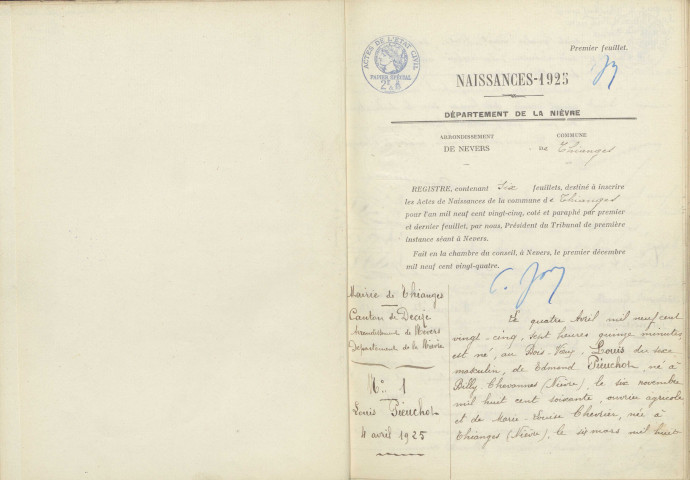 ACTES DE L'ÉTAT CIVIL
PAPIER SPÉCIAL
Premier feuillet.
NAISSANCES-1925
DÉPARTEMENT DE LA NIÈVRE
ARRONDISSEMENT
DE NEVERS
COMMUNE
DE Thianges
REGISTRE, contenant Six feuillets, destiné à inscrire
les Actes de Naissances de la commune de Thianges
pour l'an mil neuf cent vingt-cinq, coté et paraphé par premier
et dernier feuillet, par nous, Président du Tribunal de première
instance séant à Nevers.
Fait en la chambre du conseil, à Nevers, le premier décembre
mil neuf cent vingt-quatre.
Mairie de Thianges
Canton de Decize
Arrondissement de Nevers
Département de la Nièvre
N° 1
Louis Pieuchot
4 avril 1925
Le quatre Avril mil neuf cent
vingt-cinq, sept heures quinze minutes
est né, au Bois-Vay, Louis du sexe
masculin, de Edmond Pieuchot, né à
Billy Chevannes (Nièvre), le six novembre
mil huit cent soixante, ouvrier agricole
et de Marie-Louise Chevrier, née à
Thianges (Nièvre), le six mars mil huit